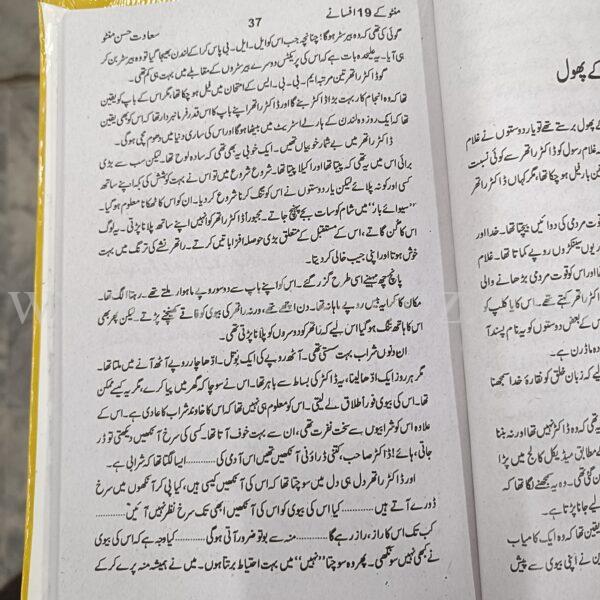 منٹو کے 19 افسانے
37
سعادت حسن منٹو
گوئی کی تھی کہ وہ بیرسٹر ہوگا؛ چنانچہ جب اس کو ایل۔ ایل۔ بی پاس کرا کے لندن بھیجا گیا تو وہ بیرسٹر بن کر
ہی آیا۔ یہ علیحدہ بات ہے کہ اس کی پریکٹس دوسرے بیرسٹروں کے مقابلے میں بہت ہی کم تھی۔
گو ڈاکٹر راٹھر تین مرتبہ ایم۔ بی۔ بی۔ ایس کے امتحان میں فیل ہو چکا تھا، مگر اس کے باپ کو یقین
تھا کہ وہ انجام کار بہت بڑا ڈاکٹر بنے گا اور ڈاکٹر راٹھر اپنے باپ کا اس قدر فرمانبردار تھا کہ اس کو بھی یقین
تھا کہ ایک روز وہ لندن کے ہارلے اسٹریٹ میں بیٹھا ہوگا اور اس کی ساری دنیا میں دھوم مچی ہوگی۔
ڈاکٹر راٹھر میں بے شمار خوبیاں تھیں۔ ایک خوبی یہ بھی تھی کہ سادہ لوح تھا۔ لیکن سب سے بڑی
برائی اس میں یہ تھی کہ پیتا تھا اور اکیلا پیتا تھا۔ شروع شروع میں تو اس نے بہت کوشش کی کہ اپنے ساتھ
کسی اور کو نہ پلائے لیکن یار دوستوں نے اس کو تنگ کرنا شروع کر دیا۔ ان کو اس کا ٹھکانا معلوم ہو گیا۔
”سیوائے بار“ میں شام کو سات بجے پہنچ جاتے۔ مجبوراً ڈاکٹر راٹھر کو انہیں اپنے ساتھ پلانا پڑتی۔ یہ لوگ
اس کا گن گاتے، اس کے مستقبل کے متعلق بڑی حوصلہ افزا باتیں کرتے۔ راٹھر نشے کی ترنگ میں بہت
خوش ہوتا اور اپنی جیب خالی کر دیتا۔
پانچ چھ مہینے اسی طرح گزر گئے۔ اس کو اپنے باپ سے دو سو روپے ماہوار ملتے تھے۔ رہتا الگ تھا۔
مکان کا کرایہ بیس روپے ماہانہ تھا۔ دن اچھے تھے، ورنہ راٹھر کی بیوی کو فاقے کھینچنے پڑتے۔ لیکن پھر بھی
اس کا ہاتھ تنگ ہو گیا اس لیے کہ راٹھر کو دوسروں کو پلانا پڑتی تھی۔
ان دنوں شراب بہت سستی تھی۔ آٹھ روپے کی ایک بوتل۔ ادھا چار روپے آٹھ آنے میں ملتا تھا۔
مگر ہر روز ایک ادھا لینا، یہ ڈاکٹر کی بساط سے باہر تھا۔ اس نے سوچا کہ گھر میں پیا کرے، مگر یہ کیسے ممکن
تھا۔ اس کی بیوی فوراً طلاق لے لیتی۔ اس کو معلوم ہی نہیں تھا کہ اس کا خاوند شراب کا عادی ہے۔ اس کے
علاوہ اس کو شرابیوں سے سخت نفرت تھی، ان سے بہت خوف آتا تھا۔ کسی کی سرخ آنکھیں دیکھتی تو ڈر
جاتی، ہائے! ڈاکٹر صاحب، کتنی ڈراؤنی آنکھیں تھیں اس آدمی کی ............ ایسا لگتا تھا کہ شرابی ہے۔
اور ڈاکٹر راٹھر دل ہی دل میں سوچتا تھا کہ اس کی آنکھیں کیسی ہیں، کیا پی کر آنکھوں میں سرخ
ڈورے آتے ہیں ............ کیا اس کی بیوی کو اس کی آنکھیں ابھی تک سرخ نظر نہیں آئیں ............
کب تک اس کا راز، راز رہے گا ............ منہ سے بو تو ضرور آتی ہوگی ............ کیا وجہ ہے کہ اس کی بیوی
نے کبھی نہیں سونگھی۔ پھر وہ سوچتا ”نہیں“ میں بہت احتیاط برتتا ہوں۔ میں نے ہمیشہ منہ پرے کر کے
کے پھول
کے پھول برستے تھے تو یار دوستوں نے غلام
غلام رسول کو ڈاکٹر راٹھر سے کوئی نسبت
بار فیل ہو چکا تھا، مگر کہاں ڈاکٹر راٹھر
قوت مردمی کی دوائیں بیچتا تھا۔ خدا اور
سینکڑوں روپے کماتا تھا۔
اور اس کو قوت مردمی بڑھانے والی
ڈاکٹر راٹھر کہتے تھے۔ اس کا کایا کلپ کو
کے بعض دوستوں کو یہ نام پسند آیا
ماڈرن ہے۔
لیے کہ زبان خلق کو نقارۂ خدا سمجھنا
تھی کہ وہ ڈاکٹر نہیں تھا اور نہ بننا
کے مطابق میڈیکل کالج میں پڑھ
تھی۔ وہ یہ سمجھنے لگا تھا کہ
جانا پڑتا ہے۔
یقین تھا کہ وہ ایک کامیاب
نے اپنی بیوی سے پیش